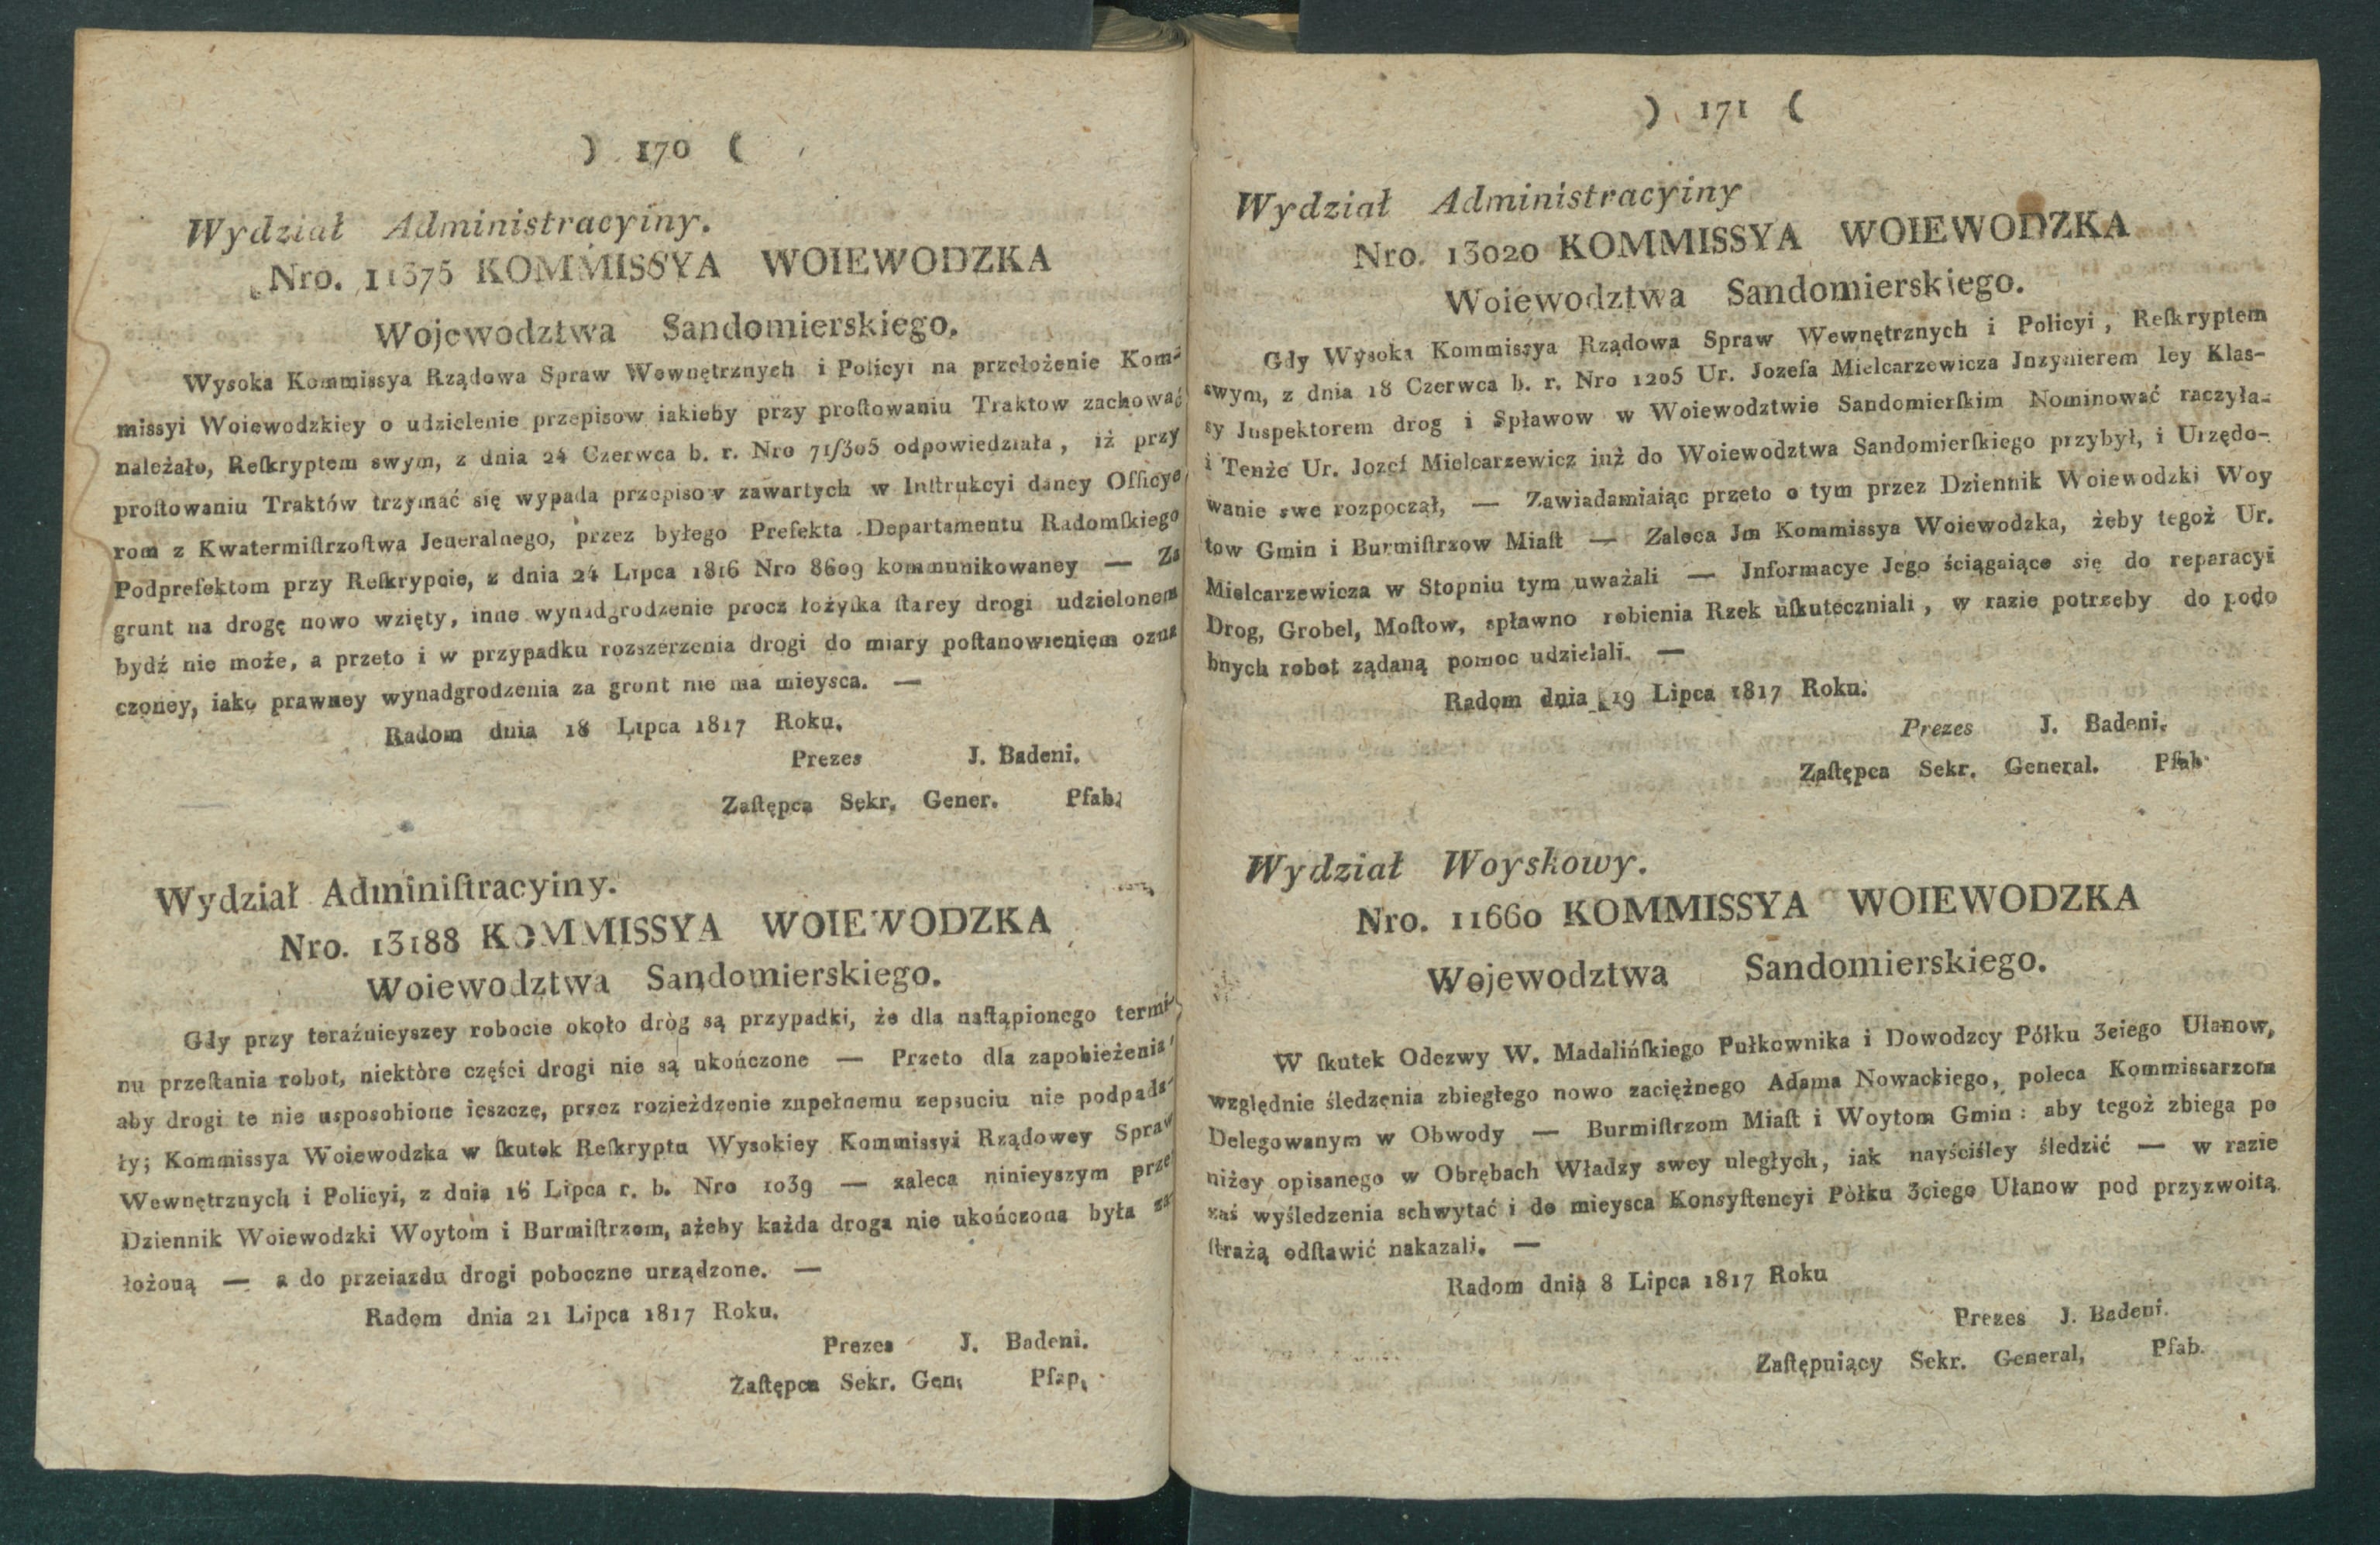 ) 170 (
Wydział Administracyiny.
Nro. 11375 KOMMISSYA WOIEWODZKA
Wojewodztwa Sandomierskiego.
Wysoka Kommissya Rządowa Spraw Wewnętrznych i Policyi na przełożenie Kom-
missyi Woiewodzkiey o udzielenie przepisow iakieby przy proſtowaniu Traktow zachować
należało, Reſkryptem swym, z dnia 24 Czerwca b. r. Nro 71/305 odpowiedziała, iż przy
proſtowaniu Traktów trzymać się wypada przepisow zawartych w Inſtrukcyi daney Officye
rom z Kwatermiſtrzoſtwa Jeneralnego, przez byłego Prefekta Departamentu Radomſkiego
Podprefektom przy Reſkrypcie, z dnia 24 Lipca 1816 Nro 8609 kommunikowaney — Za
grunt na drogę nowo wzięty, inne wynadgrodzenie procz łożyſka ſtarey drogi udzielonem
bydź nie może, a przeto i w przypadku rozszerzenia drogi do miary poſtanowieniem ozna
czoney, iako prawney wynadgrodzenia za gront nie ma mieysca. —
Radom dnia 18 Lipca 1817 Roku.
Prezes J. Badeni.
Zaſtępca Sekr. Gener. Pſab.
Wydział Adminiſtracyiny.
Nro. 13188 KOMMISSYA WOIEWODZKA
Woiewodztwa Sandomierskiego.
Gdy przy teraźnieyszey robocie około dròg są przypadki, że dla naſtąpionego termi-
nu przeſtania robot, niektòre części drogi nie są ukończone — Przeto dla zapobieżenia,
aby drogi te nie usposobione ieszcze, przez rozieżdzenie zupełnemu zepsuciu nie podpada-
ły; Kommissya Woiewodzka w ſkutek Reſkryptu Wysokiey Kommissyi Rządowey Spraw
Wewnętrznych i Policyi, z dnia 16 Lipca r. b. Nro 1039 — zaleca ninieyszym prze
Dziennik Woiewodzki Woytom i Burmiſtrzom, ażeby każda droga nie ukończona była za
łożoną — a do przeiazdu drogi poboczne urządzone. —
Radom dnia 21 Lipca 1817 Roku.
Prezes J. Badeni.
Zaſtępca Sekr. Gen. Pſap.
) 171 (
Wydział Administracyiny
Nro. 13020 KOMMISSYA WOIEWODZKA
Woiewodztwa Sandomierskiego.
Gdy Wysoka Kommissya Rządowa Spraw Wewnętrznych i Policyi, Reſkryptem
swym, z dnia 18 Czerwca b. r. Nro 1205 Ur. Jozefa Mielcarzewicza Jnzynierem Iey Klas-
sy Juspektorem drog i Spławow w Woiewodztwie Sandomierſkim Nominować raczyła-
i Tenże Ur. Jozef Mielcarzewicz inż do Woiewodztwa Sandomierſkiego przybył, i Urzędo-
wanie swe rozpoczął, — Zawiadamiaiąc przeto o tym przez Dziennik Woiewodzki Woy
tow Gmin i Burmiſtrzow Miaſt — Zaleca Jm Kommissya Woiewodzka, żeby tegoż Ur.
Mielcarzewicza w Stopniu tym uważali — Jnformacye Jego ściągaiące się do reparacyi
Drog, Grobel, Moſtow, spławno robienia Rzek uſkuteczniali, w razie potrzeby do podo
bnych robot ządaną pomoc udzielali. —
Radom dnia 19 Lipca 1817 Roku.
Prezes J. Badeni.
Zaſtępca Sekr. General. Pſab
Wydział Woyskowy.
Nro. 11660 KOMMISSYA WOIEWODZKA
Wojewodztwa Sandomierskiego.
W ſkutek Odezwy W. Madalińſkiego Pułkownika i Dowodzcy Półku 3ciego Ułanow,
względnie śledzenia zbiegłego nowo zaciężnego Adama Nowackiego, poleca Kommissarzom
Delegowanym w Obwody — Burmiſtrzom Miaſt i Woytom Gmin: aby tegoż zbiega po
niżey opisanego w Obrębach Władzy swey uległych, iak nayściśley śledzić — w razie
zaś wyśledzenia schwytać i do mieysca Konsyſtencyi Pòłku 3ciego Ułanow pod przyzwoitą
ſtrażą odſtawić nakazali. —
Radom dnia 8 Lipca 1817 Roku
Prezes J. Badeni.
Zaſtępuiący Sekr. General, Pſab.